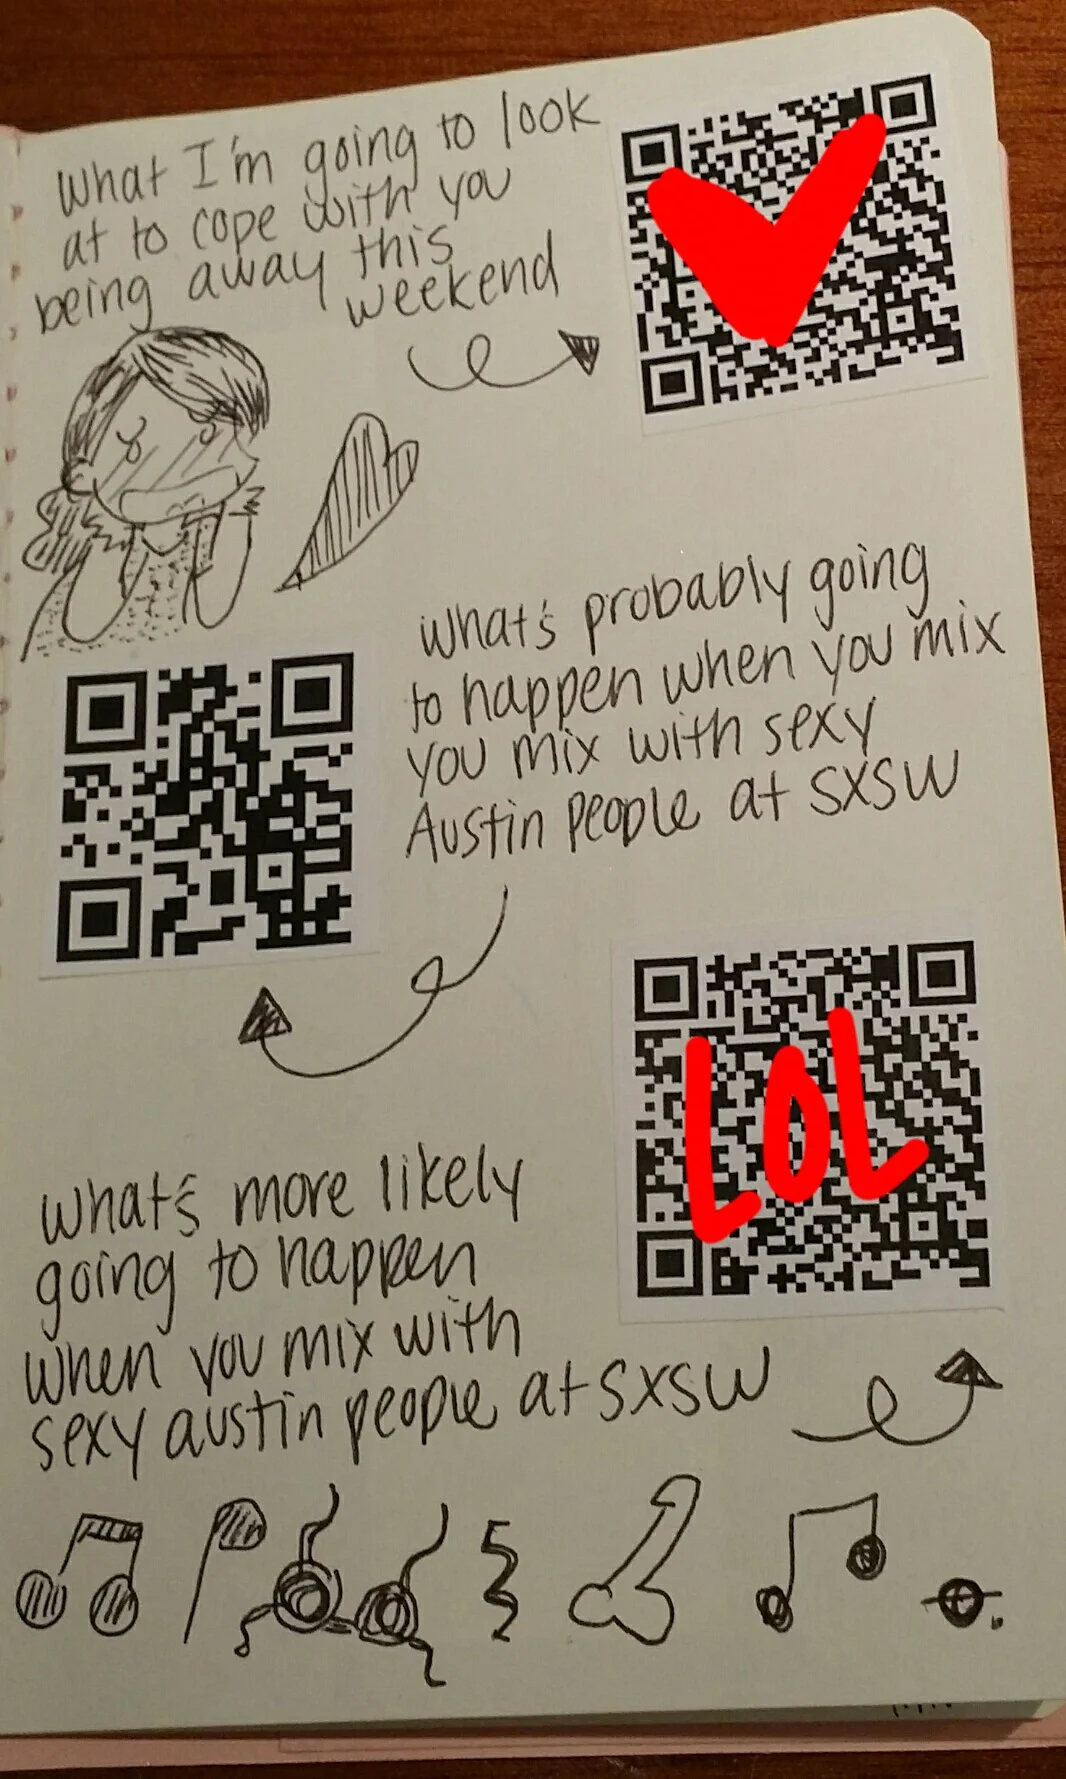 what I'm going to look
at to cope with you
being away this
weekend
what's probably going
to happen when you mix
you mix with sexy
Austin people at SXSW
LOL
what's more likely
going to happen
when you mix with
sexy austin people at SXSW